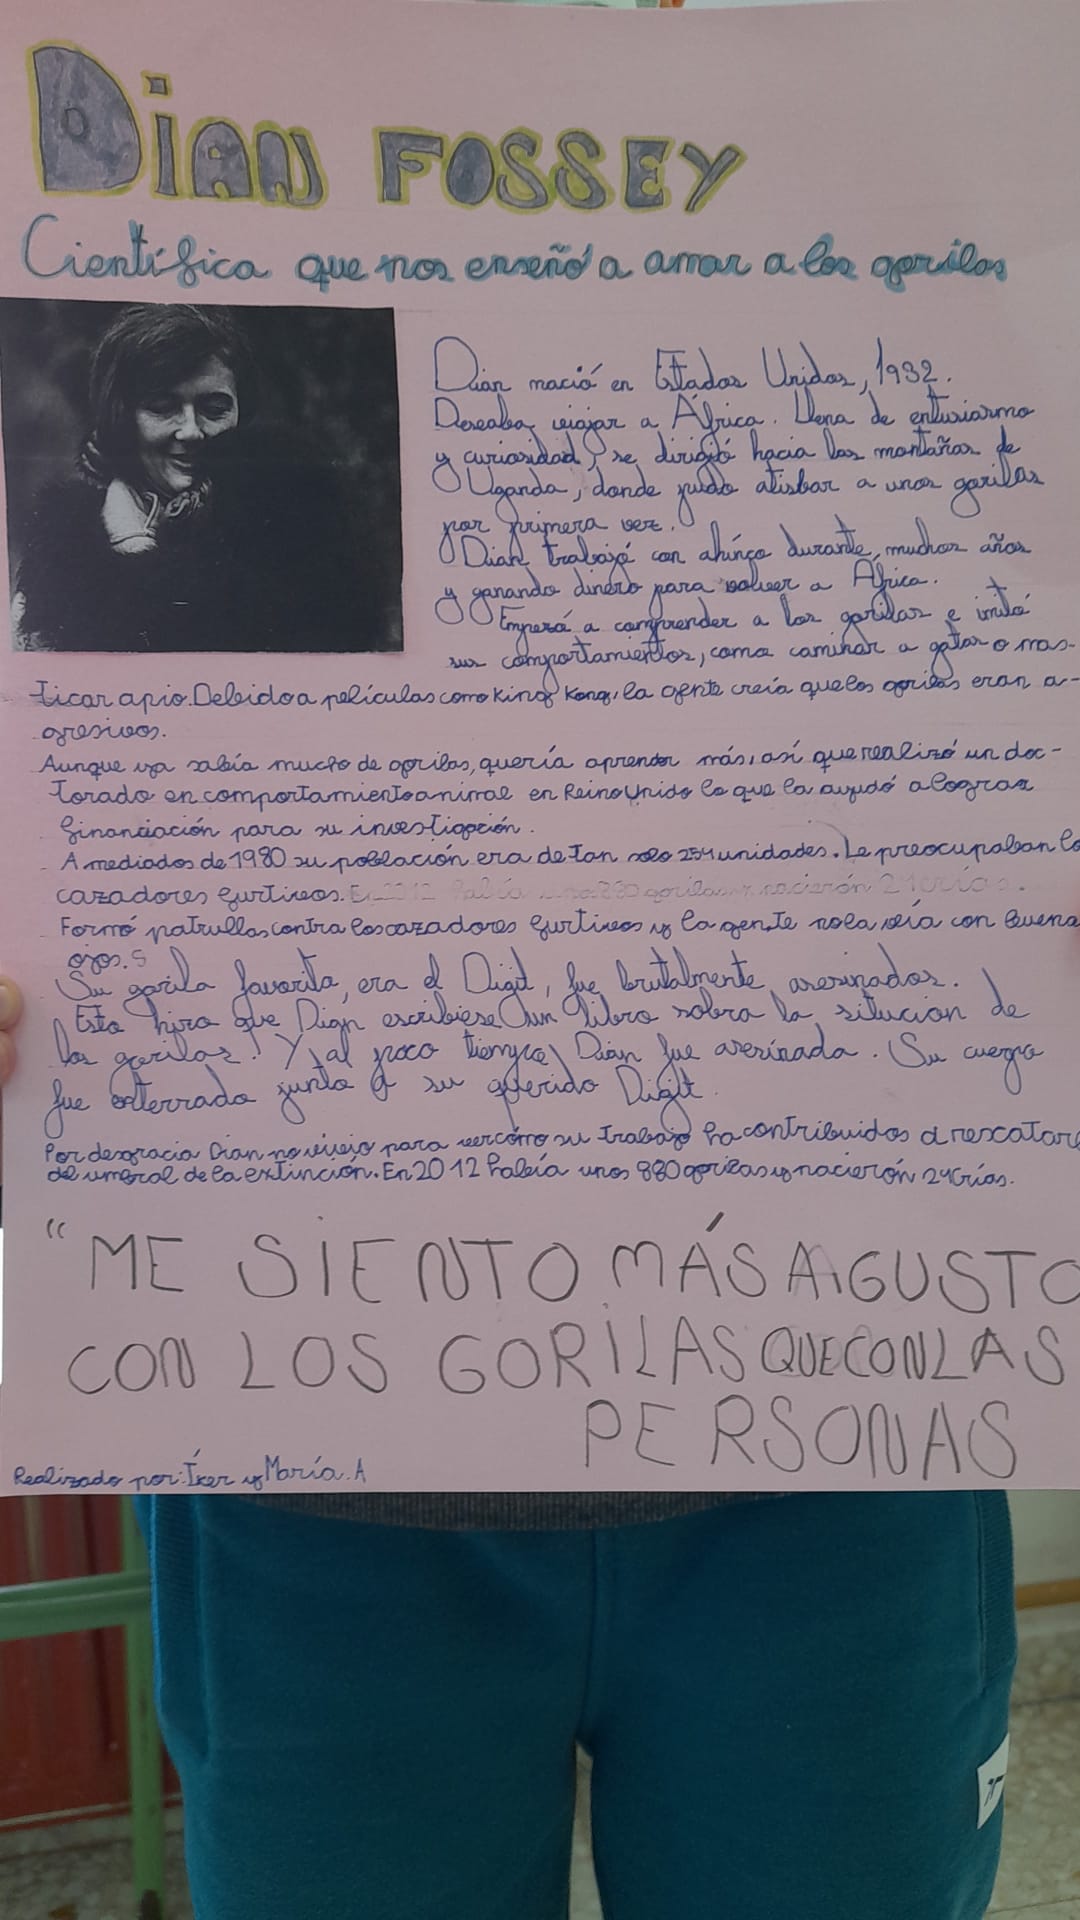 Dian FOSSEY
Científica que nos enseñó a amar a los gorilas
Dian nació en Estados Unidos, 1932.
Deseaba viajar a África. Llena de entusiasmo
y curiosidad, se dirigió hacia las montañas de
Uganda, donde pudo atisbar a unos gorilas
por primera vez.
Dian trabajó con ahínco durante muchos años
y ganando dinero para volver a África.
Empezó a comprender a los gorilas e imitó
sus comportamientos, como caminar a gatas o mas-
ticar apio. Debido a películas como King Kong, la gente creía que los gorilas eran a-
gresivos.
Aunque ya sabía mucho de gorilas, quería aprender más, así que realizó un doc-
torado en comportamiento animal en Reino Unido lo que la ayudó a lograr
financiación para su investigación.
A mediados de 1980 su población era de tan solo 254 unidades. Le preocupaban lo
cazadores furtivos. En 2012 había unos 880 gorilas y nacierón 24 crías.
Formó patrullas contra los cazadores furtivos y la gente no la veía con buena
ojos. S
Su gorila favorita, era el Digit, fue brutalmente asesinados.
Esto hizo que Dian escribiese un libro sobra la situcion de
los gorilas. Y al poco tiempo, Dian fue asesinada. Su cuerpo
fue enterrado junto a su querido Digit.
Por desgracia Dian no vivejo para ver cómo su trabajo ha contribuidos a rescatarl
del umbral de la extinción. En 2012 había unos 880 gorilas y nacierón 24 crías.
"ME SIENTO MÁS A GUSTO
CON LOS GORILAS QUE CON LAS
PERSONAS
Realizado por: Íker y María. A